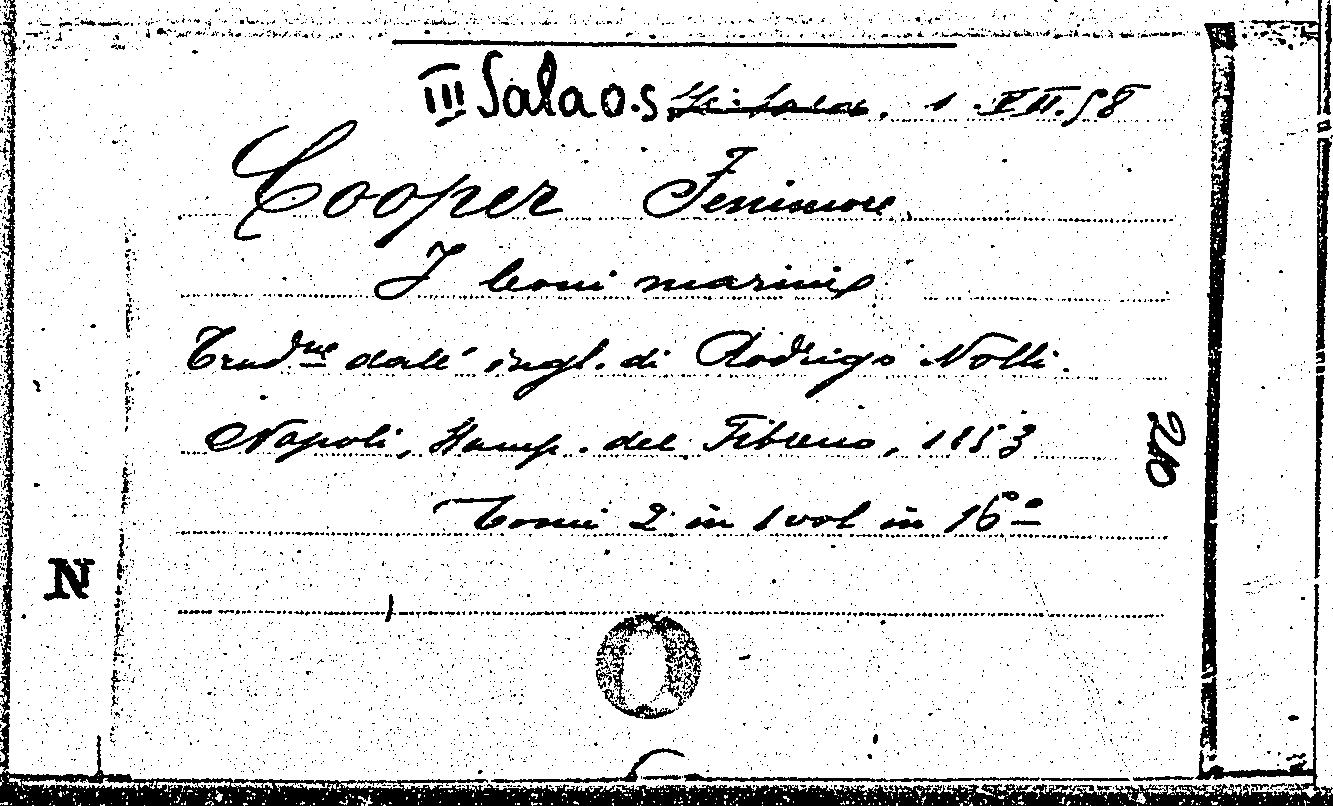 III Sala o.s 1. VII. 58
Cooper Fenimore
I leoni marini
Trad.ne dall' ingl. di Rodrigo Nolli.
Napoli, Stamp. del Fibreno, 1853
Tomi 2 in 1 vol in 16°
210
N